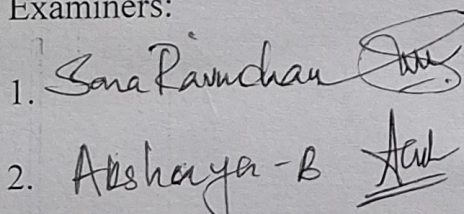 Examiners:
1. Sona Ravindran
2. Akshaya - B